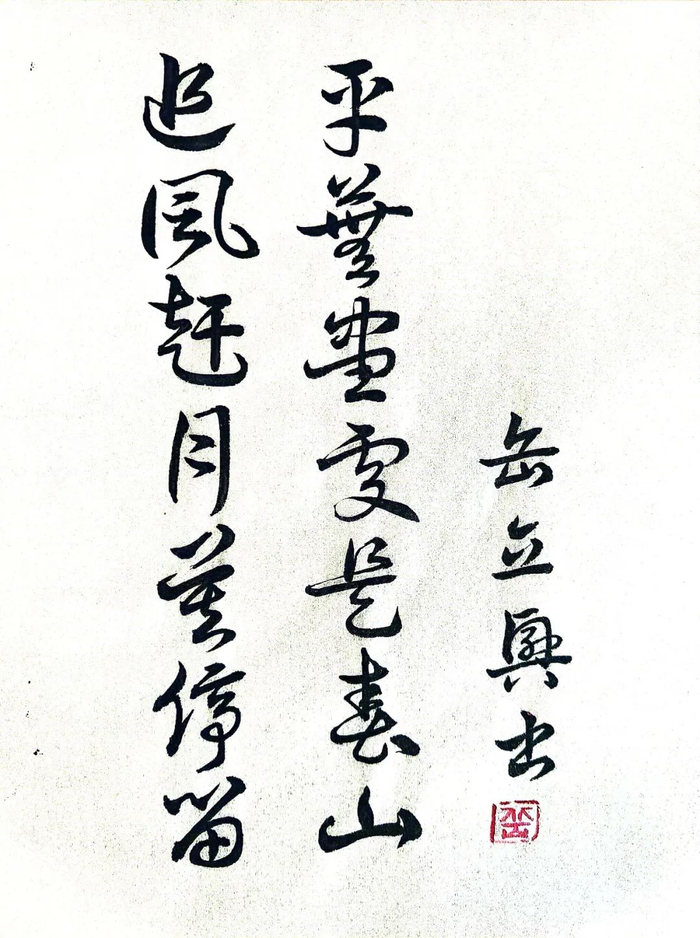 追風赶月莫停留
平蕪盡處是春山
岳立興书